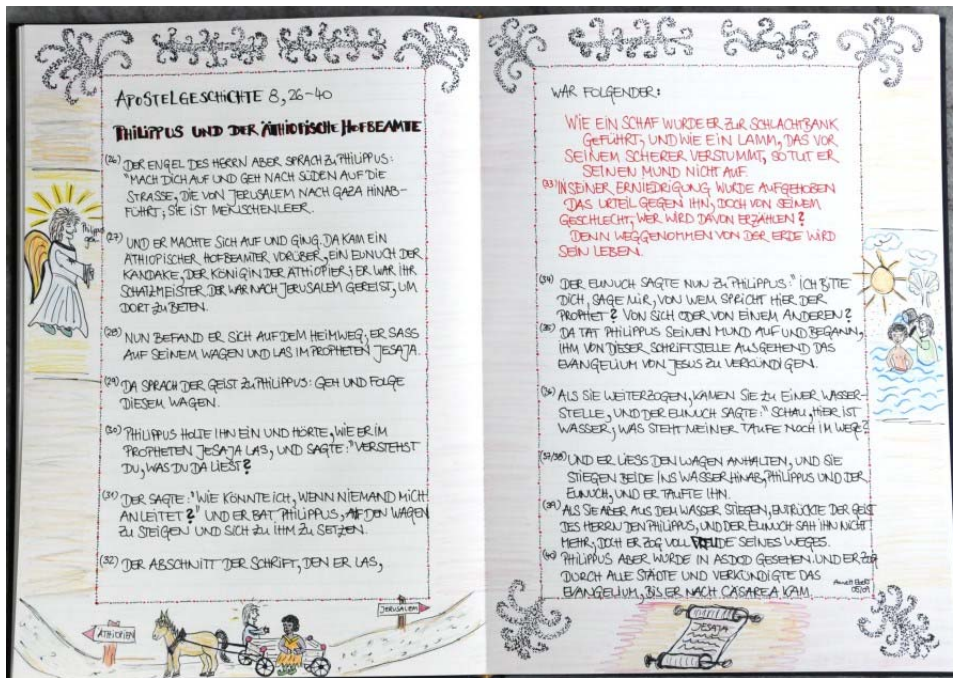 APOSTELGESCHICHTE 8,26-40
PHILIPPUS UND DER ÄTHIOPISCHE HOFBEAMTE
(26) DER ENGEL DES HERRN ABER SPRACH ZU PHILIPPUS:
"MACH DICH AUF UND GEH NACH SÜDEN AUF DIE
STRASSE, DIE VON JERUSALEM NACH GAZA HINAB-
FÜHRT; SIE IST MENSCHENLEER.
(27) UND ER MACHTE SICH AUF UND GING. DA KAM EIN
ÄTHIOPISCHER HOFBEAMTER VORÜBER, EIN EUNUCH DER
KANDAKE, DER KÖNIGIN DER ÄTHIOPIER; ER WAR IHR
SCHATZMEISTER. DER WAR NACH JERUSALEM GEREIST, UM
DORT ZU BETEN.
(28) NUN BEFAND ER SICH AUF DEM HEIMWEG, ER SASS
AUF SEINEM WAGEN UND LAS IM PROPHETEN JESAJA.
(29) DA SPRACH DER GEIST ZU PHILIPPUS: GEH UND FOLGE
DIESEM WAGEN.
(30) PHILIPPUS HOLTE IHN EIN UND HÖRTE, WIE ER IM
PROPHETEN JESAJA LAS, UND SAGTE: "VERSTEHST
DU, WAS DU DA LIEST?
(31) DER SAGTE: "WIE KÖNNTE ICH, WENN NIEMAND MICH
ANLEITET?" UND ER BAT PHILIPPUS, AUF DEN WAGEN
ZU STEIGEN UND SICH ZU IHM ZU SETZEN.
(32) DER ABSCHNITT DER SCHRIFT, DEN ER LAS,
ÄTHIOPIEN
JERUSALEM
WAR FOLGENDER:
WIE EIN SCHAF WURDE ER ZUR SCHLACHTBANK
GEFÜHRT; UND WIE EIN LAMM, DAS VOR
SEINEM SCHERER VERSTUMMT, SO TUT ER
SEINEN MUND NICHT AUF.
(33) IN SEINER ERNIEDRIGUNG WURDE AUFGEHOBEN
DAS URTEIL GEGEN IHN; DOCH VON SEINEM
GESCHLECHT, WER WIRD DAVON ERZÄHLEN?
DENN WEGGENOMMEN VON DER ERDE WIRD
SEIN LEBEN.
(34) DER EUNUCH SAGTE NUN ZU PHILIPPUS: "ICH BITTE
DICH, SAGE MIR, VON WEM SPRICHT HIER DER
PROPHET? VON SICH ODER VON EINEM ANDEREN?
(35) DA TAT PHILIPPUS SEINEN MUND AUF UND BEGANN,
IHM VON DIESER SCHRIFTSTELLE AUSGEHEND DAS
EVANGELIUM VON JESUS ZU VERKÜNDIGEN.
(36) ALS SIE WEITERZOGEN, KAMEN SIE ZU EINER WASSER-
STELLE, UND DER EUNUCH SAGTE: "SCHAU, HIER IST
WASSER, WAS STEHT MEINER TAUFE NOCH IM WEGE?
(37/38) UND ER LIESS DEN WAGEN ANHALTEN, UND SIE
STIEGEN BEIDE INS WASSER HINAB, PHILIPPUS UND DER
EUNUCH, UND ER TAUFTE IHN.
(39) ALS SIE ABER AUS DEM WASSER STIEGEN, ENTRÜCKTE DER GEIST
DES HERRN DEN PHILIPPUS, UND DER EUNUCH SAH IHN NICHT
MEHR; DOCH ER ZOG VOLL FREUDE SEINES WEGES.
(40) PHILIPPUS ABER WURDE IN ASDOD GESEHEN. UND ER ZOG
DURCH ALLE STÄDTE UND VERKÜNDIGTE DAS
EVANGELIUM, BIS ER NACH CÄSAREA KAM.
JESAJA